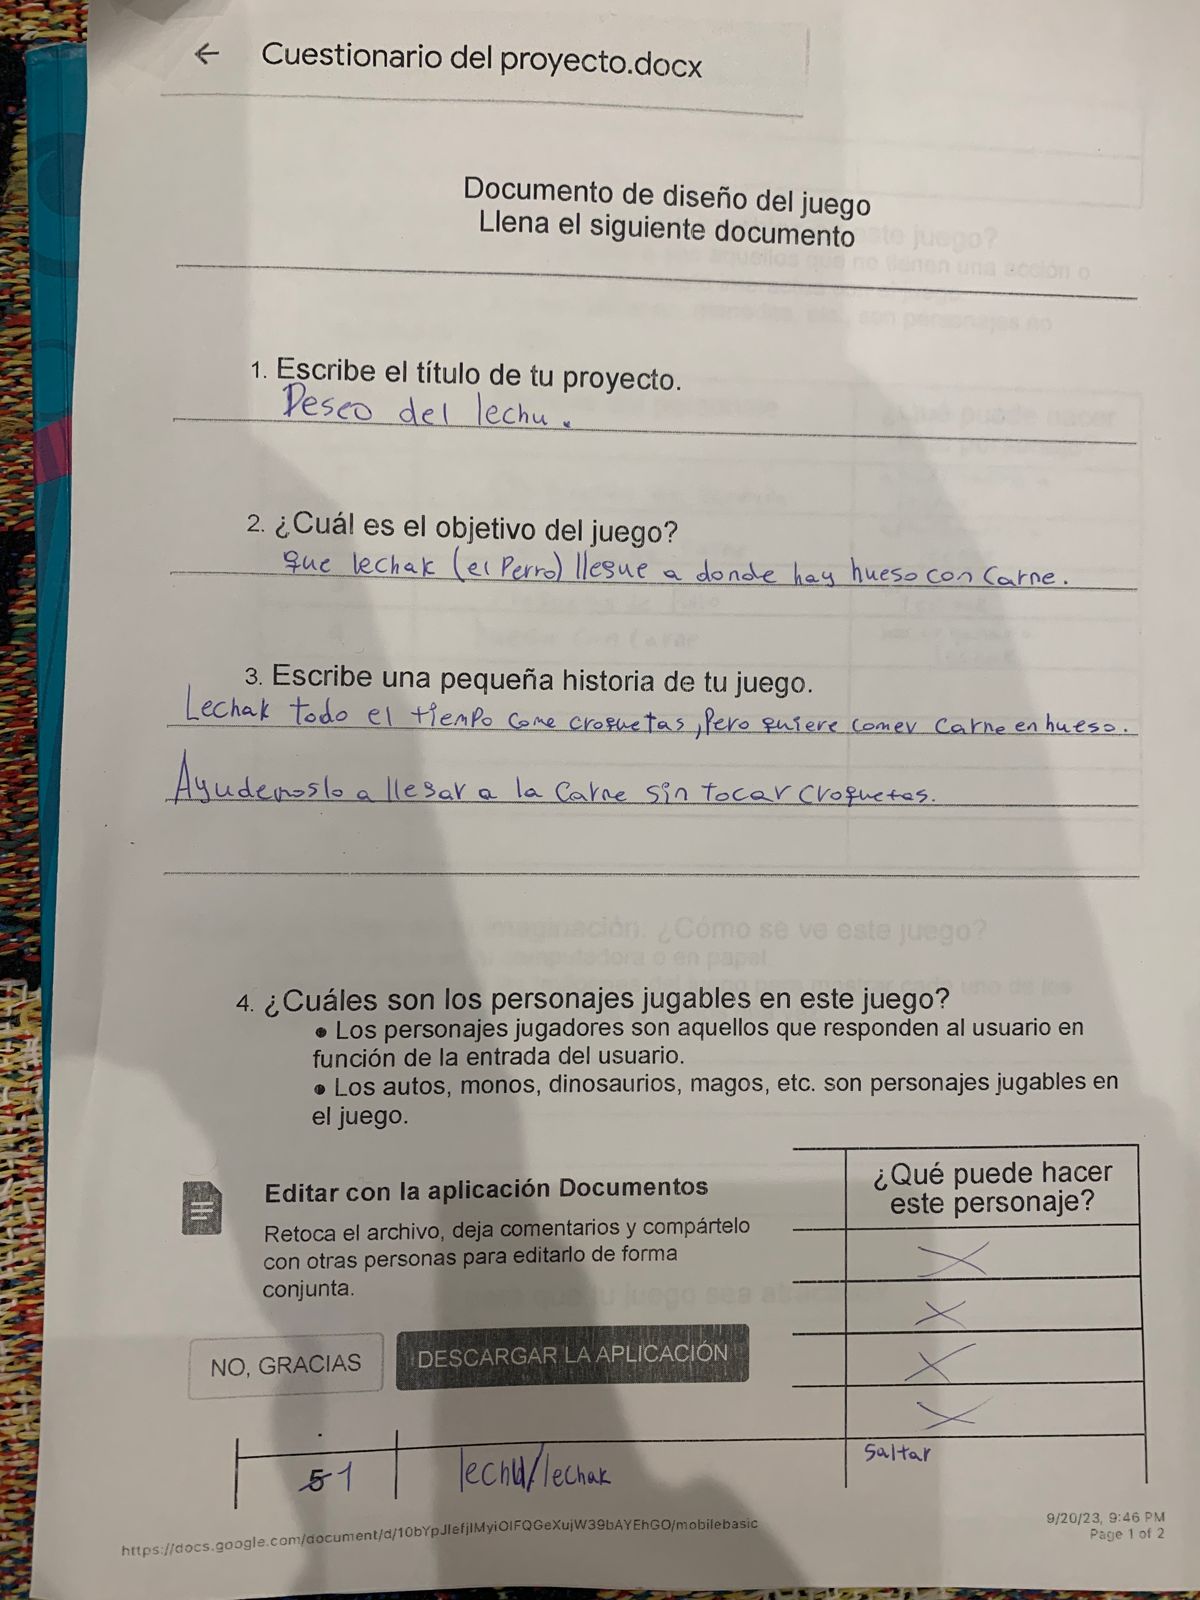 ← Cuestionario del proyecto.docx
Documento de diseño del juego
Llena el siguiente documento
1. Escribe el título de tu proyecto.
Deseo del lechu.
2. ¿Cuál es el objetivo del juego?
que lechak (el Perro) llegue a donde hay hueso con Carne.
3. Escribe una pequeña historia de tu juego.
Lechak todo el tiempo come croquetas, pero quiere comer carne en hueso.
Ayudemoslo a llegar a la Carne sin tocar croquetas.
4. ¿Cuáles son los personajes jugables en este juego?
● Los personajes jugadores son aquellos que responden al usuario en
función de la entrada del usuario.
● Los autos, monos, dinosaurios, magos, etc. son personajes jugables en
el juego.
¿Qué puede hacer
este personaje?
Editar con la aplicación Documentos
Retoca el archivo, deja comentarios y compártelo
con otras personas para editarlo de forma
conjunta.
X
X
X
X
NO, GRACIAS
DESCARGAR LA APLICACIÓN
5 1
lechu/lechak
Saltar
9/20/23, 9:46 PM
Page 1 of 2